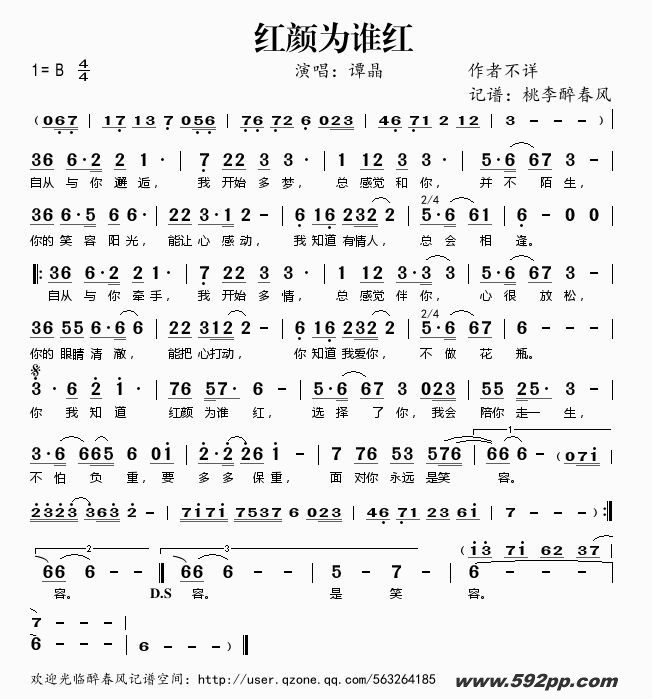 红颜为谁红
1=B 4/4 演唱：谭晶 作者不详
记谱：桃李醉春风
（067 | 17 137 056 | 76 726 023 | 46 71 2 12 | 3 - - ）|
36 6·2 2 1· | 7 22 3 3· | 1 12 3 3· | 5·6 67 3 - |
自从 与你 邂逅， 我 开始 多梦， 总 感觉 和你， 并不 陌生，
2/4
36 6·5 6 6· | 22 3·1 2 - | 6 16 232 2 | 5·6 61 | 6 - 0 0 |
你的 笑容 阳光， 能让 心感动， 我 知道 有情人， 总会 相逢。
‖: 36 6·2 2 1· | 7 22 3 3· | 1 12 3·3 3 | 5·6 67 3 - |
自从 与你 牵手， 我 开始 多情， 总 感觉 伴你， 心很 放松，
2/4
36 55 6·6 6 | 22 312 2 - | 6 16 232 2 | 5·6 67 | 6 - - - |
你的 眼睛 清澈， 能把 心打动， 你 知道 我爱你， 不做 花 瓶。
3· 6 2 1· | 76 57· 6 - | 5·6 67 3 023 | 55 25· 3 - |
你 我 知道 红颜 为谁 红， 选择 了你，我会 陪你 走一 生，
1
3·6 665 6 01 | 2·2 26 1 - | 7 76 53 576 | 66 6 - (071 |
不怕 负 重，要 多多 保重， 面 对你 永远 是笑 容。
2323 363 2 - | 7171 7537 6 023 | 46 71 23 61 | 7 - - ):‖
2 3 (13 71 62 37
66 6 - - ‖ 66 6 - - | 5 - 7 - | 6 - - -
容。 D.S 容。 是 笑 容。
7 - - -
6 - - - | 6 - - ）‖
欢迎光临醉春风记谱空间：http://user.qzone.qq.com/563264185
www.592pp.com